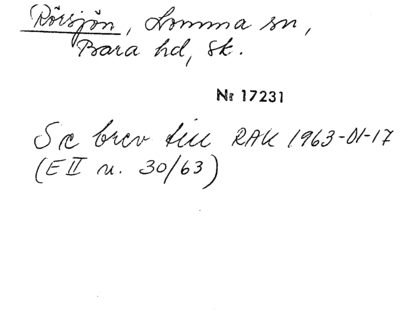 Rörsjön, Lomma sn,
Bara hd, Sk.
№ 17231
Se brev till RAK 1963-01-17
(E II n. 30/63)